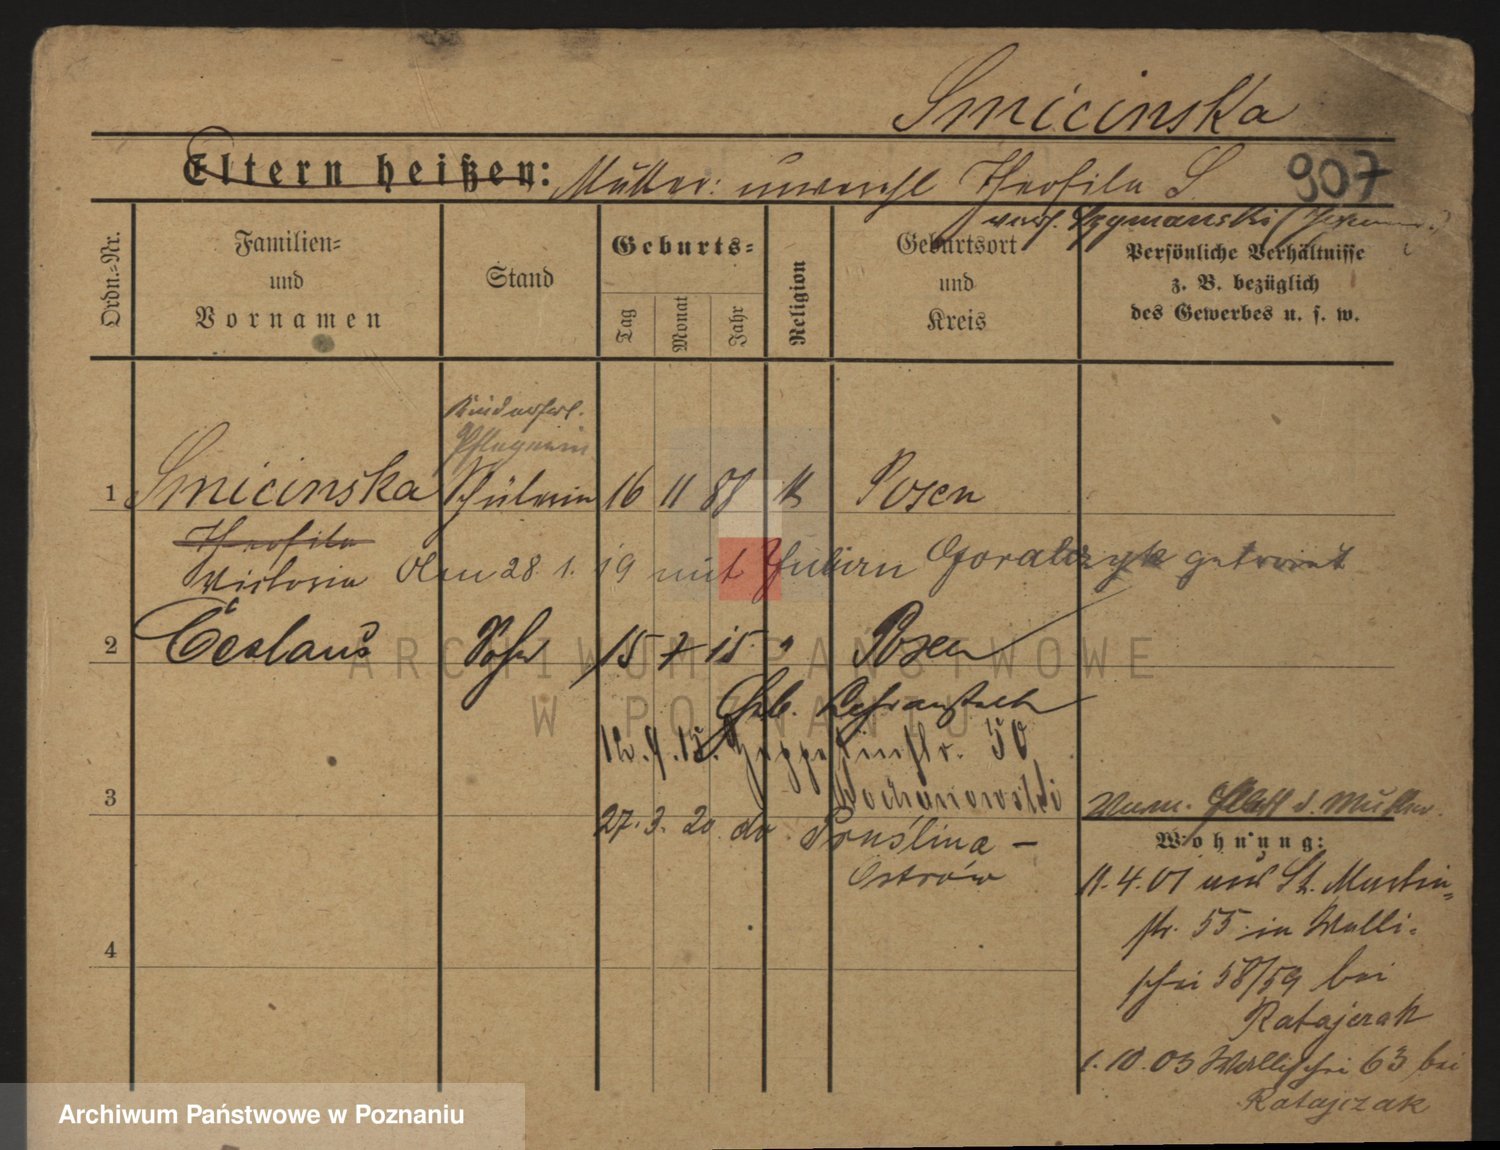 Smicinska
Eltern heißen: Mutter: unverehl Theofila S 907
verh. Szymanski
Ordn.-Nr.
Familien-
und
Vornamen
Stand
Geburts-
Tag
Monat
Jahr
Religion
Geburtsort
und
Kreis
Persönliche Verhältnisse
z. B. bezüglich
des Gewerbes u. s. w.
Pflegerin
1 Smicinska Schülerin 16 11 87 K Posen
Theofila
Victoria Den 28. 1. 19 mit Julian Goralczyk getraut
2 Ceslaus Sohn 15 7 15 " Posen
Geb.
ARCHIWUM PAŃSTWOWE
W POZNANIU
50
3
27. 3. 20 do Pruślina -
Ostrów
d. Mutter.
Wohnung:
11. 4. 01 aus St. Martin-
str. 55 in Walli-
schei 58/59 bei
Ratajczak
4
1. 10. 03 Wallischei 63 bei
Ratajczak
Archiwum Państwowe w Poznaniu